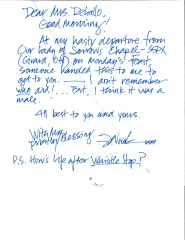 Dear Mrs. DeLallo,
Good Morning!
At my hasty departure from
Our Lady of Sorrows Chapel - SSPX
on Monday's Feast,
someone handed this to me to
get to you. I don't remember
who and!... But, I think it was a
male.
All best to you and yours.
With my
priestly Blessing
P.S. How's life after Whistle Stop?